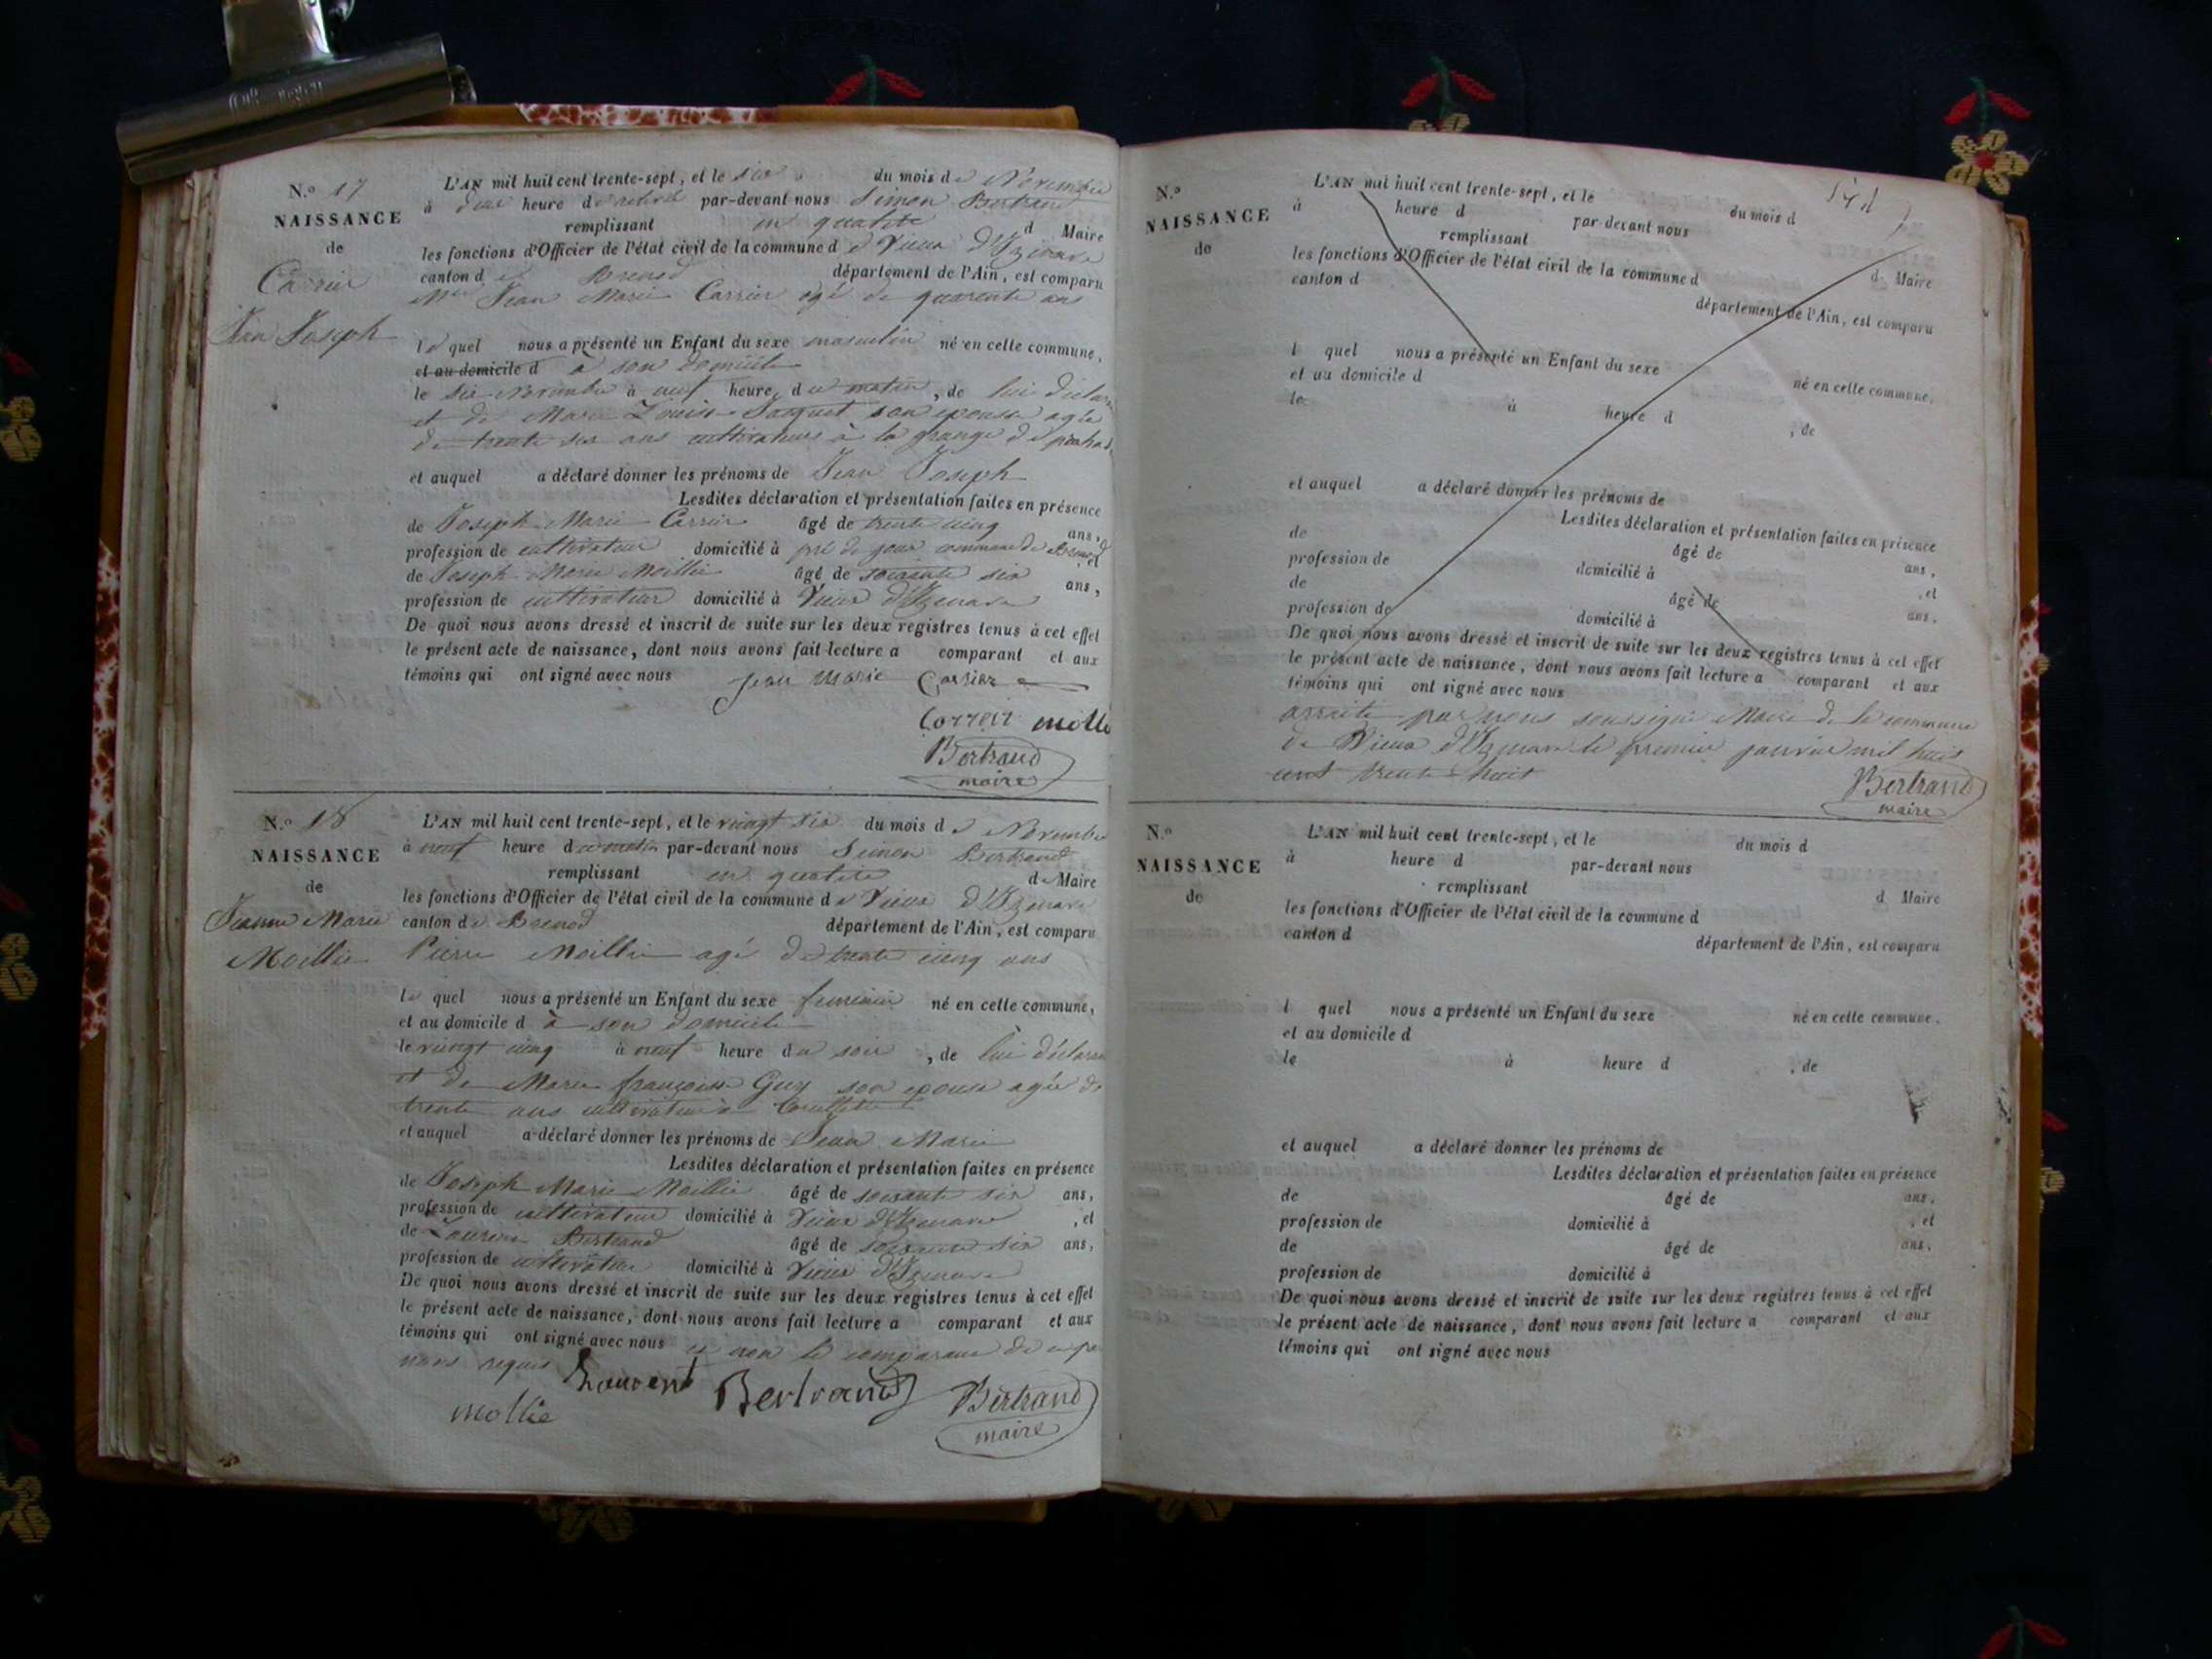 N.º 17
NAISSANCE
de
Carrier
Jean Joseph
L'AN mil huit cent trente-sept, et le six du mois de Novembre
à heure de par-devant nous Simon Bertrand
remplissant en qualité d Maire
les fonctions d'Officier de l'état civil de la commune de Vieux d'Izenave
canton de Brenod département de l'Ain, est comparu
Jean Marie Carrier agé de quarente ans
le quel nous a présenté un Enfant du sexe masculin né en cette commune,
et au domicile d à son domicile
le six Novembre à neuf heure du matin, de lui déclarant
et de Marie Louise Jacquet son epouse agée
de trente six ans cultivateurs à la grange de
et auquel a déclaré donner les prénoms de Jean Joseph
Lesdites déclaration et présentation faites en présence
de Joseph Marie Carrier âgé de trente cinq ans,
profession de cultivateur domicilié à pré de jour commune de Brenod, et
de Joseph Marie Moillie âgé de soixante six ans,
profession de cultivateur domicilié à Vieux d'Izenave
De quoi nous avons dressé et inscrit de suite sur les deux registres tenus à cet effet
le présent acte de naissance, dont nous avons fait lecture a comparant et aux
témoins qui ont signé avec nous Jean Marie Carrier
Bertrand
maire
N.º 18
NAISSANCE
de
Jeanne Marie
Moillie
L'AN mil huit cent trente-sept, et le vingt six du mois de Novembre
à neuf heure du matin par-devant nous Simon Bertrand
remplissant en qualité de Maire
les fonctions d'Officier de l'état civil de la commune de Vieux d'Izenave
canton de Brenod département de l'Ain, est comparu
Pierre Moillie agé de trente cinq ans
le quel nous a présenté un Enfant du sexe feminin né en cette commune,
et au domicile d à son domicile
le vingt cinq à neuf heure du soir, de lui déclarant
et de Marie françoise Guy son epouse agée de
trente ans cultivateur à
et auquel a déclaré donner les prénoms de Jean Marie
Lesdites déclaration et présentation faites en présence
de Joseph Marie Moillie âgé de soixante six ans,
profession de cultivateur domicilié à Vieux d'Izenave, et
de Laurent Bertrand âgé de soixante six ans,
profession de cultivateur domicilié à Vieux d'Izenave
De quoi nous avons dressé et inscrit de suite sur les deux registres tenus à cet effet
le présent acte de naissance, dont nous avons fait lecture a comparant et aux
témoins qui ont signé avec nous et non le comparant de ce par
nous requis Laurent Bertrand Bertrand
mollie maire
N.º
NAISSANCE
de
L'AN mil huit cent trente-sept, et le du mois d
à heure d par-devant nous
remplissant d Maire
les fonctions d'Officier de l'état civil de la commune d
canton d département de l'Ain, est comparu
l quel nous a présenté un Enfant du sexe né en cette commune,
et au domicile d
le à heure d , de
et auquel a déclaré donner les prénoms de
Lesdites déclaration et présentation faites en présence
de âgé de ans,
profession de domicilié à , et
de âgé de ans,
profession de domicilié à
De quoi nous avons dressé et inscrit de suite sur les deux registres tenus à cet effet
le présent acte de naissance, dont nous avons fait lecture a comparant et aux
témoins qui ont signé avec nous
par nous soussigné Maire de la commune
de Vieux d'Izenave le premier janvier mil huit
cent trente huit Bertrand
maire
N.º
NAISSANCE
de
L'AN mil huit cent trente-sept, et le du mois d
à heure d par-devant nous
remplissant d Maire
les fonctions d'Officier de l'état civil de la commune d
canton d département de l'Ain, est comparu
l quel nous a présenté un Enfant du sexe né en cette commune.
et au domicile d
le à heure d , de
et auquel a déclaré donner les prénoms de
Lesdites déclaration et présentation faites en présence
de âgé de ans,
profession de domicilié à , et
de âgé de ans,
profession de domicilié à
De quoi nous avons dressé et inscrit de suite sur les deux registres tenus à cet effet
le présent acte de naissance, dont nous avons fait lecture a comparant et aux
témoins qui ont signé avec nous